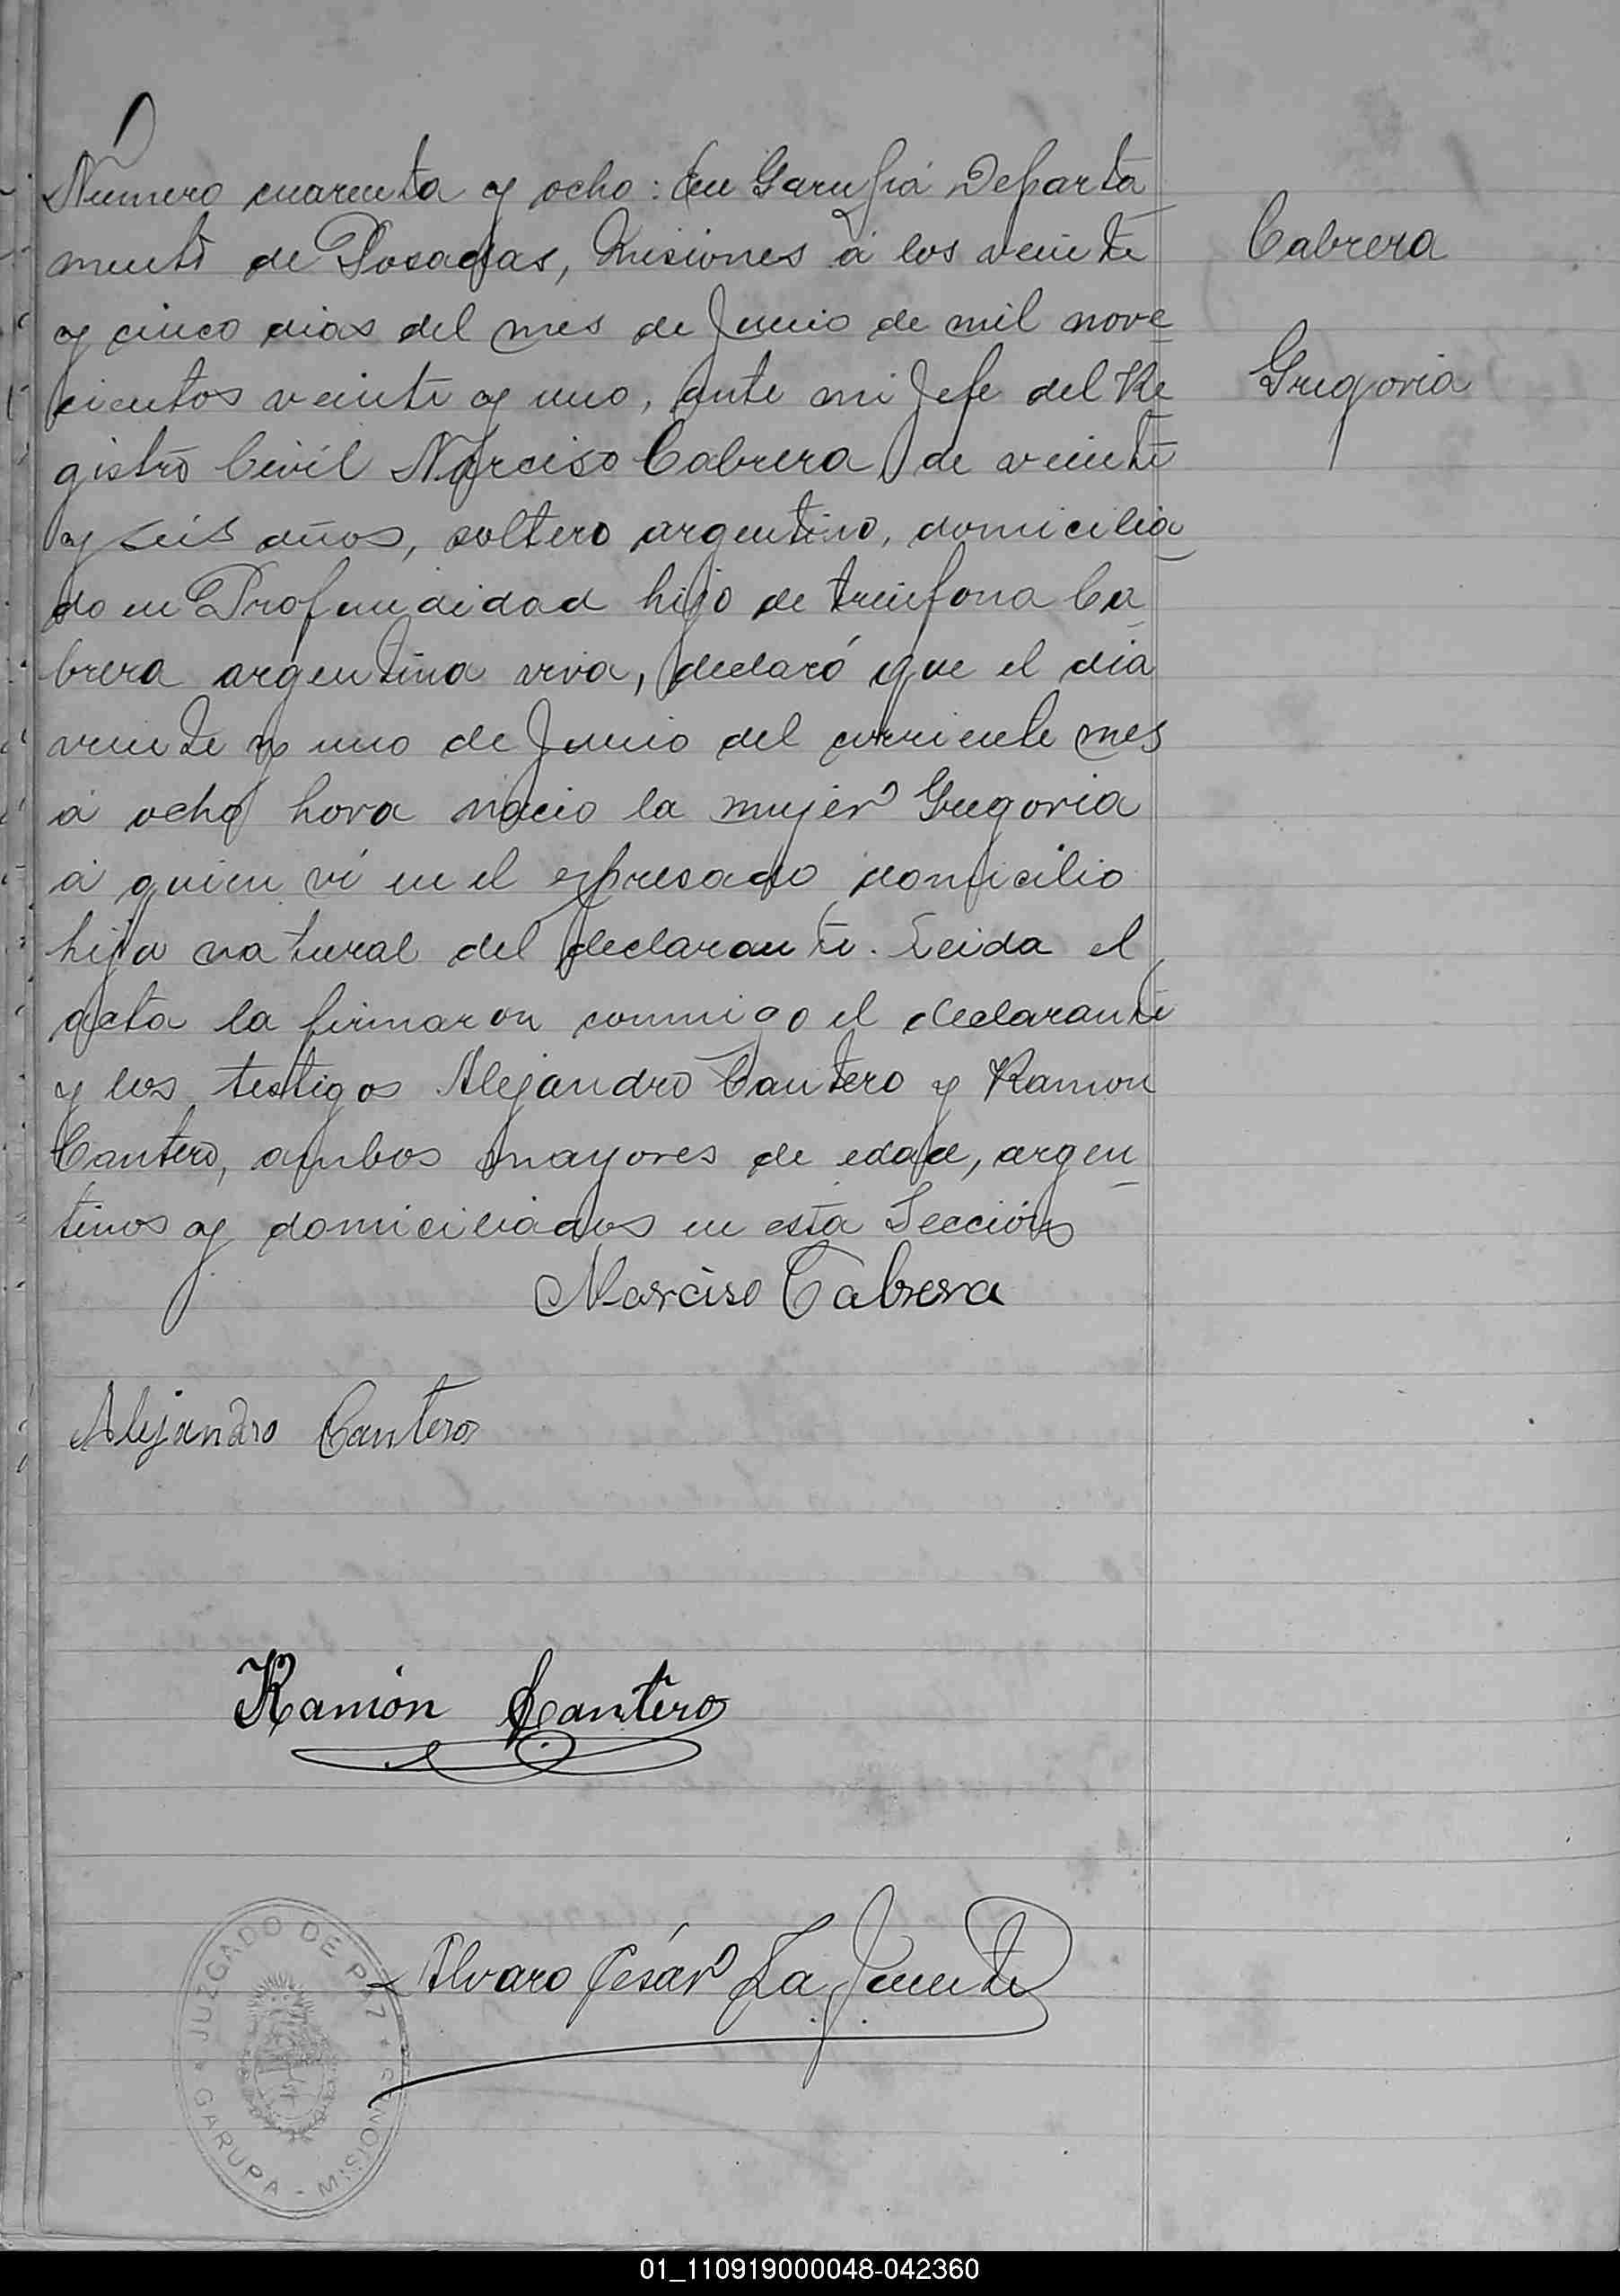 Número cuarenta y ocho: En Garupá Departa
mento de Posadas, Misiones á los veinte
y cinco dias del mes de Junio de mil nove
cientos veinte y uno, ante mi Jefe del Re
gistro Civil Narciso Cabrera de veinte
y seis años, soltero argentino, domicilia
do en Profundidad hijo de Treinfona Ca
brera argentina viva, declaró que el dia
veinte y uno de Junio del corriente mes
á ocho hora nacio la mujer Gregoria
á quien ví en el expresado domicilio
hija natural del declarante. Leida el
acta la firmaron conmigo el declarante
y los testigos Alejandro Cantero y Ramon
Cantero, ambos mayores de edad, argen
tinos y domiciliados en esta Sección
Cabrera
Gregoria
Narciso Cabrera
Alejandro Cantero
Ramón Cantero
Alvaro César La Fuente
JUZGADO DE PAZ
GARUPA - MISIONES
01_110919000048-042360